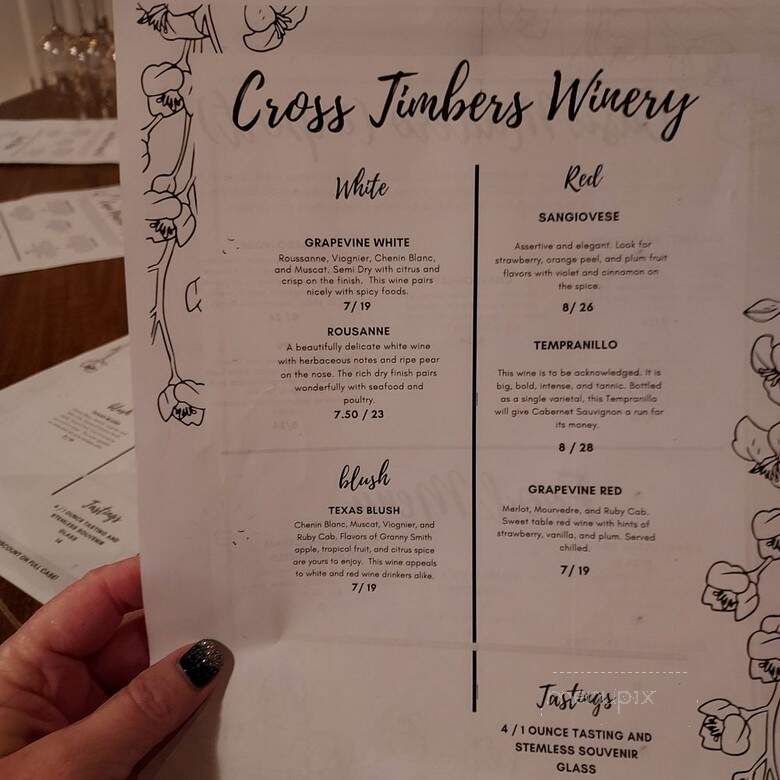 Cross Timbers Winery
White
GRAPEVINE WHITE
Roussanne, Viognier, Chenin Blanc,
and Muscat. Semi Dry with citrus and
crisp on the finish. This wine pairs
nicely with spicy foods.
7/ 19
ROUSANNE
A beautifully delicate white wine
with herbaceous notes and ripe pear
on the nose. The rich dry finish pairs
wonderfully with seafood and
poultry.
7.50 / 23
blush
TEXAS BLUSH
Chenin Blanc, Muscat, Viognier, and
Ruby Cab. Flavors of Granny Smith
apple, tropical fruit, and citrus spice
are yours to enjoy. This wine appeals
to white and red wine drinkers alike.
7/ 19
Red
SANGIOVESE
Assertive and elegant. Look for
strawberry, orange peel, and plum fruit
flavors with violet and cinnamon on
the spice.
8/ 26
TEMPRANILLO
This wine is to be acknowledged. It is
big, bold, intense, and tannic. Bottled
as a single varietal, this Tempranillo
will give Cabernet Sauvignon a run for
its money.
8 / 28
GRAPEVINE RED
Merlot, Mourvedre, and Ruby Cab.
Sweet table red wine with hints of
strawberry, vanilla, and plum. Served
chilled.
7/ 19
Tastings
4 / 1 OUNCE TASTING AND
STEMLESS SOUVENIR
GLASS
blush
Tastings
4 / 1 OUNCE TASTING AND
STEMLESS SOUVENIR
GLASS
14
DISCOUNT ON FULL CASE!